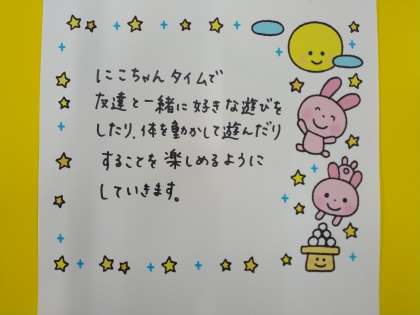 にこちゃんタイムで
友達と一緒に好きな遊びを
したり、体を動かして遊んだり
することを楽しめるように
していきます。